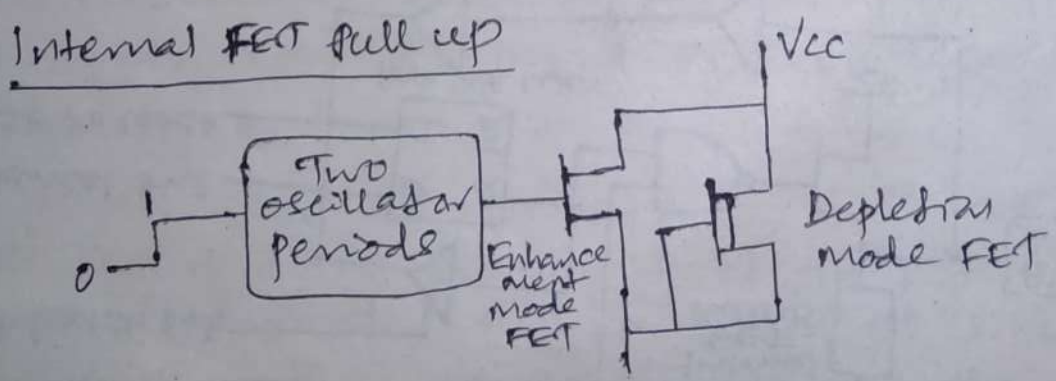 Internal FET Pull up
Vcc
1
0
Two
oscillator
periods
Enhance
ment
mode
FET
Depletion
mode FET